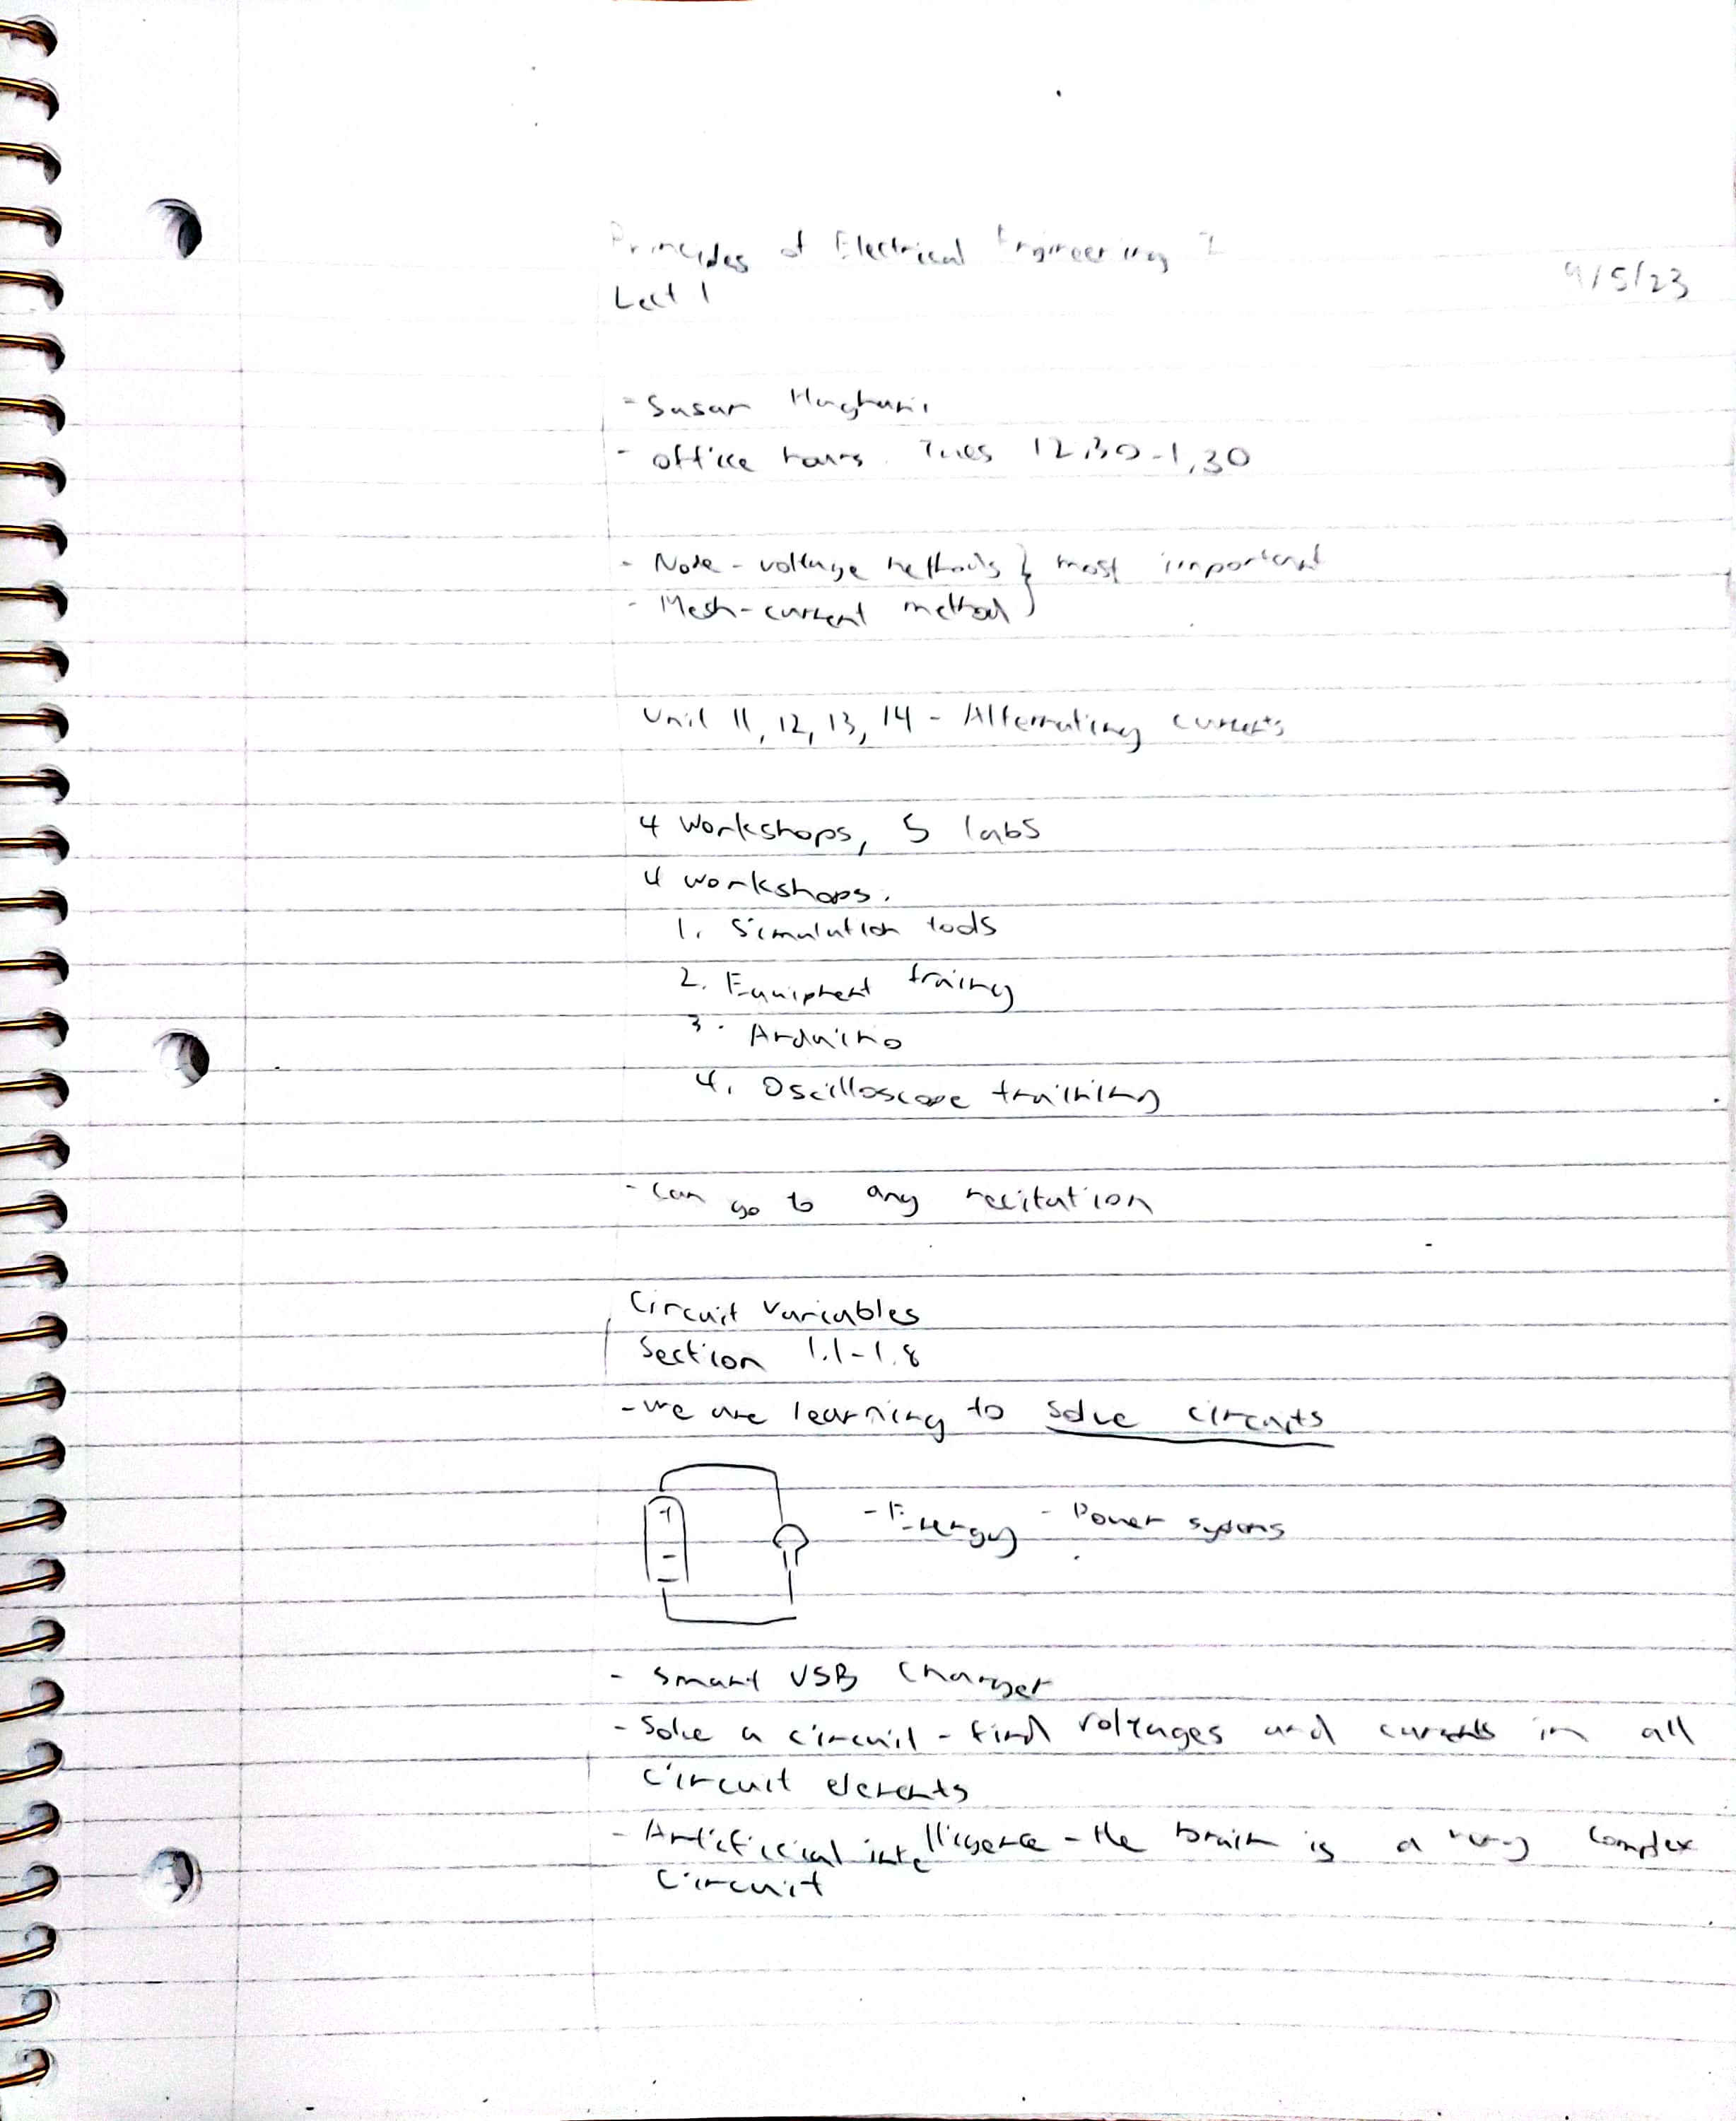 Principles of Electrical Engineering I
9/5/23
Lect 1
- Susan
- office hours. Tues 12:30-1:30
- Node-voltage methods } most important
- Mesh-current method
Unit 11, 12, 13, 14 - Alternating currents
4 workshops, 5 labs
4 workshops:
1. Simulation tools
2. Equipment training
3. Arduino
4. Oscilloscope training
- can go to any recitation
Circuit variables
Section 1.1-1.8
- we are learning to solve circuits
+
- Energy - Power systems
-
- Smart USB Charger
- Solve a circuit - find voltages and currents in all
circuit elements
- Artificial intelligence - the brain is a very complex
circuit